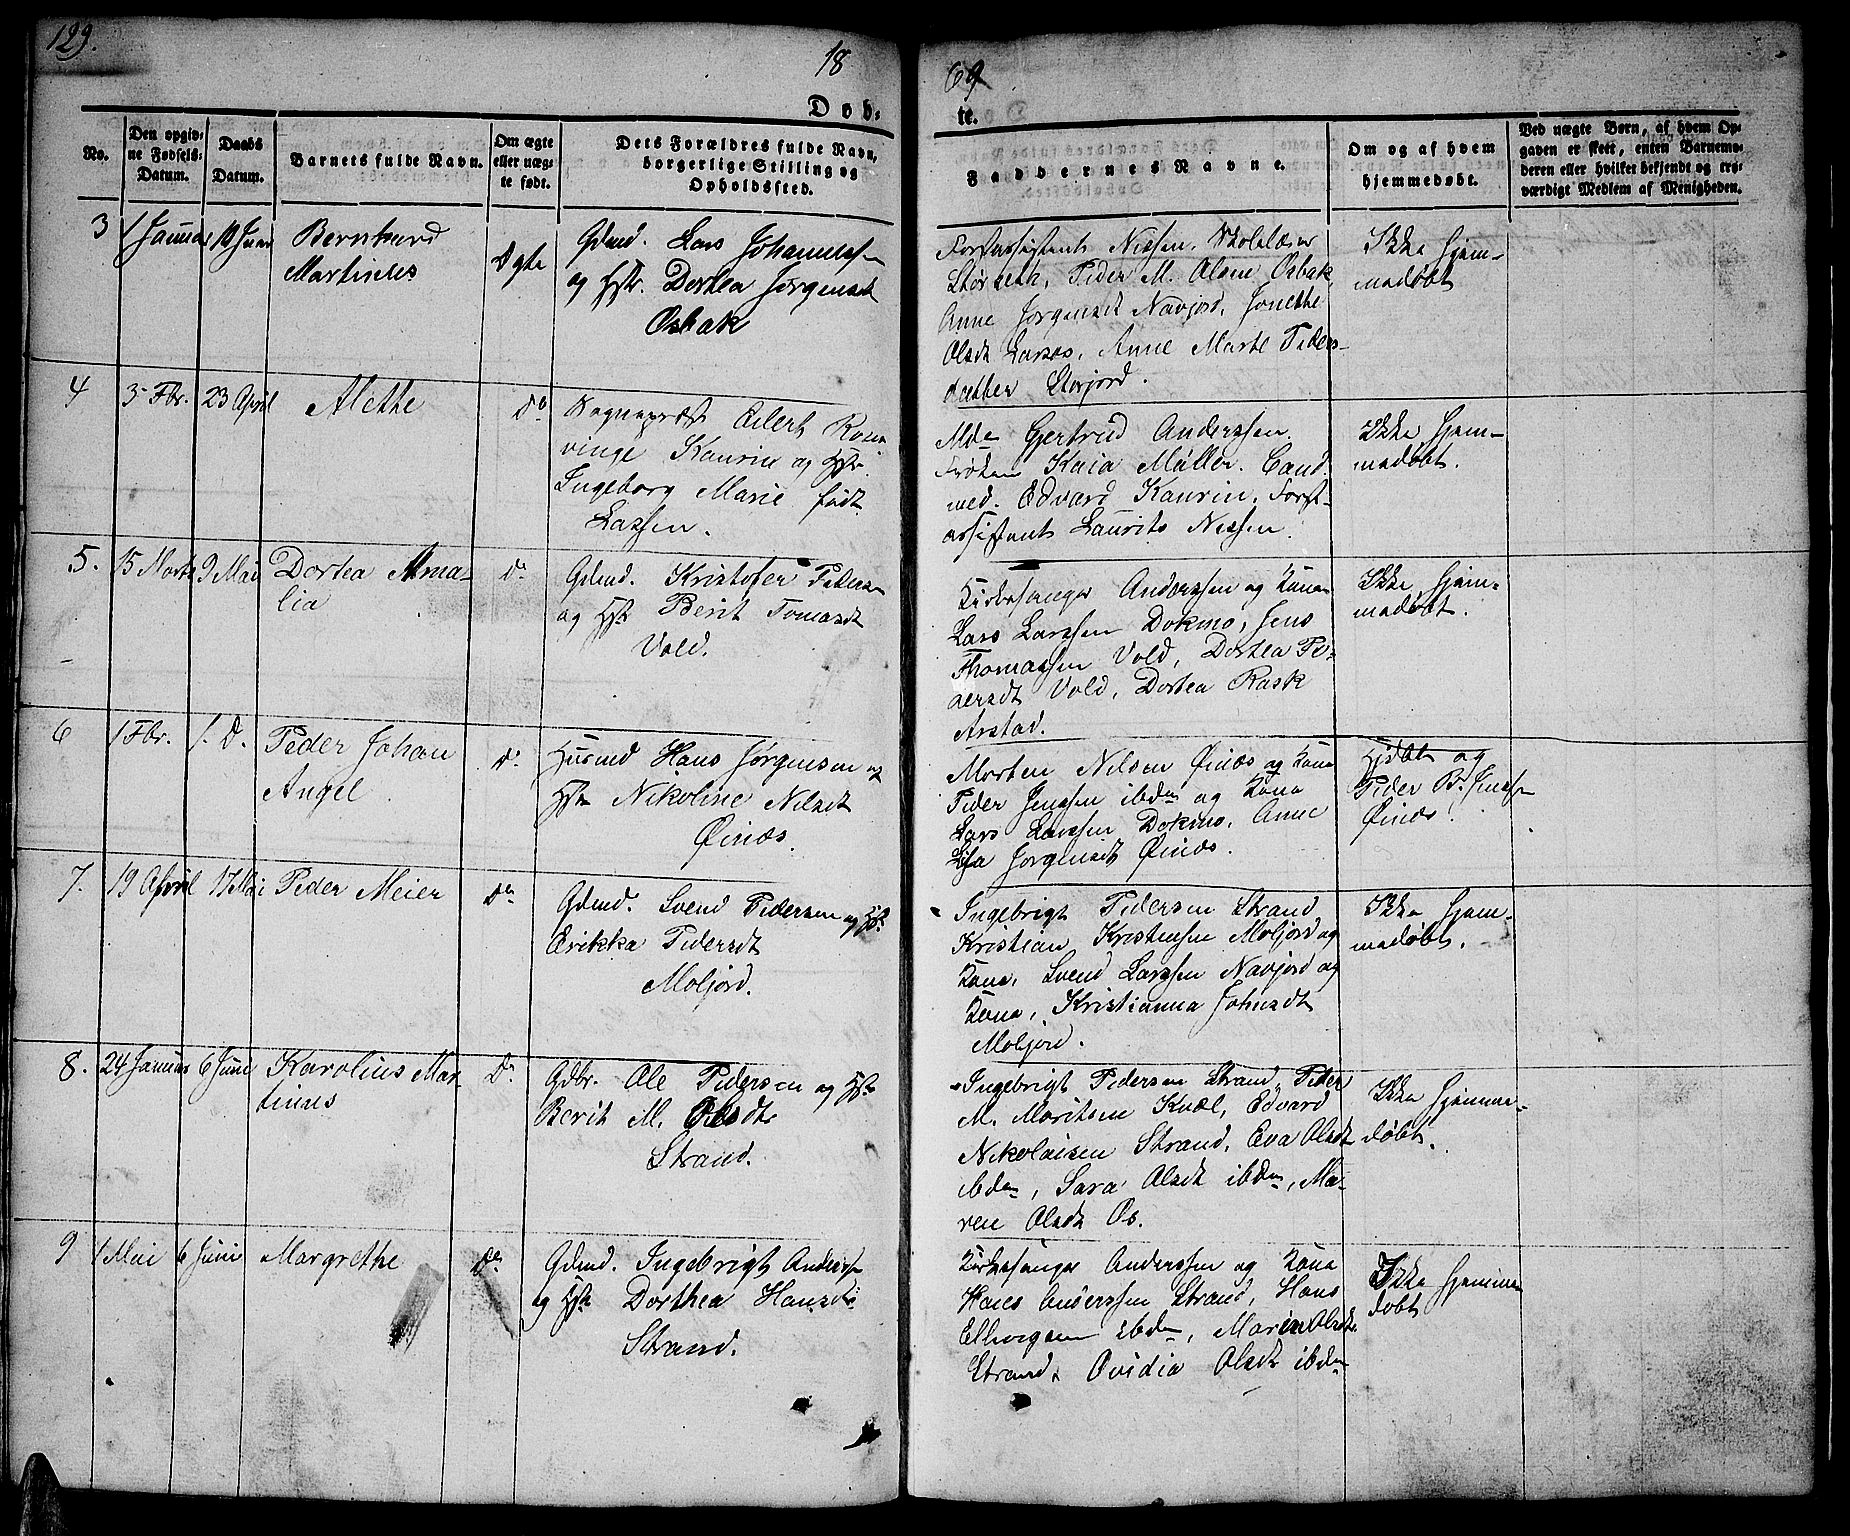 129.
18
69
Døb-
te.
No.
Den opgiv-
ne Fødsels-
Datum.
Daabs
Datum.
Barnets fulde Navn.
Om ægte
eller uæg-
te født.
Dets Forældres fulde Navn,
borgerlige Stilling og
Opholdssted.
Faddernes Navne.
Om og af hvem
hjemmedøbt.
Ved uægte Børn, af hvem Op-
gaven er skett, enten Barnemo-
deren eller hvilket bekjendt og tro-
værdigt Medlem af Menigheden.
3
1 Januar
Bernhard
Martinus
Ægte
Gdmd. Lars Johanness
og Hstr. Dortea Jørgensdt
Osbak
Forstassistent Nissen, Skolelærer
Størseth, Peder M. Olsen Osbak,
Anne Jørgensdt Navjord, Jonethe
Olsdt Larsos, Anne Marte Peders-
datter Storjord.
Ikke hjem-
medøbt
4
5 Fbr.
23 April
Alethe
Do
Sognepræst Eilert
vinge Kaurin og Hstr.
Ingeborg Marie født
Lassen.
Mdm Gjertrud Anderssen.
Frøken Kaia Müller. Cand
med. Edvard Kaurin, Forst-
assistent Laurits Nissen.
Ikke hjem-
medøbt.
5.
15 Marts
9 Mai
Dortea Ama-
lia
Do
Gdmd. Kristofer Peders
og Hstr Berit Tomasdt
Vold.
Kirkesanger Anderssen og Kone
Lars Larssen Dokmo, Jens
Thomassen Vold, Dortea Pe-
dersdt Vold, Dortea Rask
Arstad.
Ikke hjem-
medøbt.
6
1 Fbr.
1. D.
Peder Johan
Angel
Do
Husmd Hans Jørgensen og
Hstr Nikoline Nilsdt
Øinæs.
Morten Nilsen Øinæs og Kone
Peder Jenssen ibdm og Kone
Lars Larssen Dokmo, Anne
Lisa Jørgensdt Øinæs.
Hjdbt og
Peder B. Jenss
Øinæs.
7.
19 April
17 Mai
Peder Meier
Do
Gdmd. Svend Pedersen og Hstr.
Erikka Pedersdt
Moljord.
Ingebrigt Pedersen Strand
Kristian Kristensen Moljord og
Kone, Svend Larssen Navjord og
Kone, Kristianna Johnsdt
Moljord.
Ikke hjem-
medøbt.
8.
24 Januar
6 Juni
Karolius Mar-
tinus
Do
Gdbr. Ole Pedersen og Hstr
Berit M. Olsdt
Strand.
Ingebrigt Pedersen Strand, Peder
M. Moritsen Kvæl, Edvard
Nikolaisen Strand, Eva Olsdt
ibdm, Sara Olsdt ibdm, Ma-
ren Olsdt Os.
Ikke hjemme-
døbt.
9
1 Mai
6 Juni
Margrethe
Do
Gdmd. Ingebrigt Anders
og Hstr Dorthea Hansdt
Strand.
Kirkesanger Anderssen og Kone
Hans Anderssen Strand, Hans
Ellingsen ibdm, Maria Olsdt
Strand, Ovidia Olsdt ibdm
Ikke hjemme
døbt